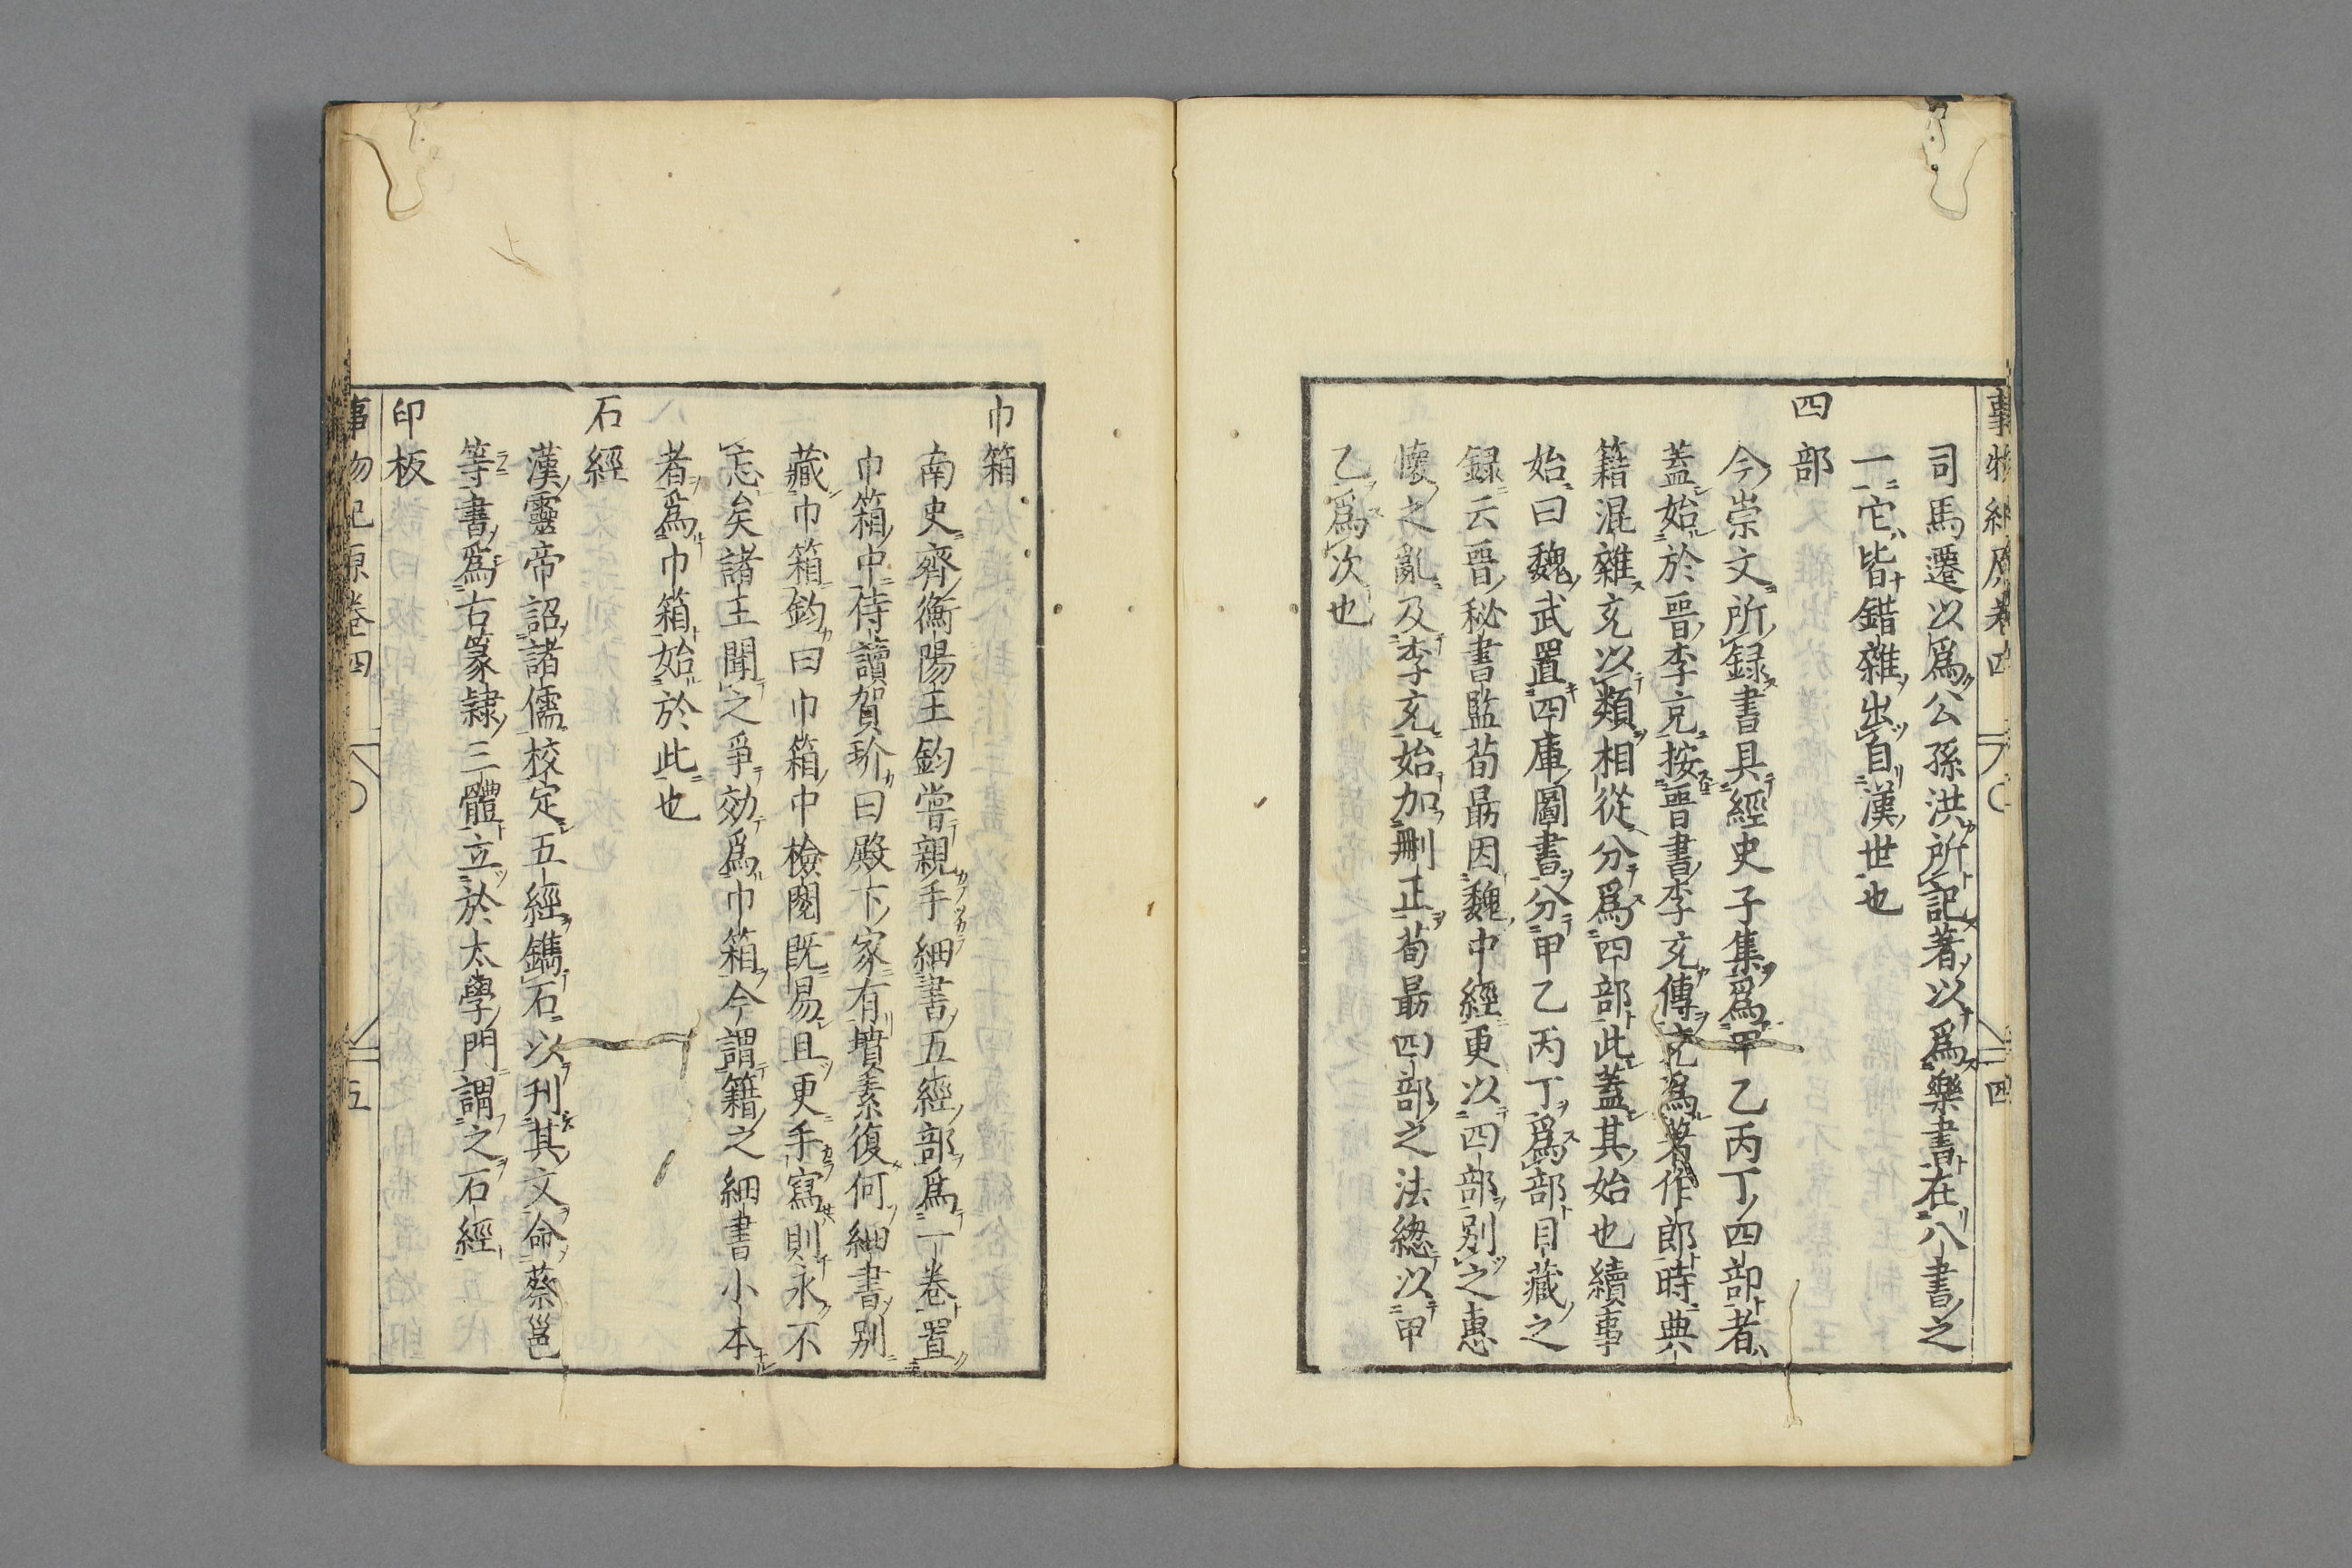 事物紀原卷四
四
司馬遷以爲公孫洪所記著以爲樂書在八書之
一它皆錯雜出自漢世也
四部
今崇文所録書具經史子集爲甲乙丙丁四部者
蓋始於晉李充按晉書李充傳充爲著作郎時典
籍混雜充以類相從分爲四部此蓋其始也續事
始曰魏武置四庫圖書分甲乙丙丁爲部目藏之
録云晉秘書監荀勗因魏中經更以四部別之惠
懷之亂及李充始加刪正荀勗四部之法總以甲
乙爲次也
巾箱
南史齊衡陽王鈞嘗親手細書五經部爲一卷置
巾箱中侍讀賀玠曰殿下家有墳素復何細書別
藏巾箱鈞曰巾箱中檢閱既易且更手寫則永不
忘矣諸王聞之爭効爲巾箱今謂籍之細書小本
者爲巾箱始於此也
石經
漢靈帝詔諸儒校定五經鐫石以刊其文命蔡邕
等書爲古篆隷三體立於太學門謂之石經
印板
事物紀原卷四
五